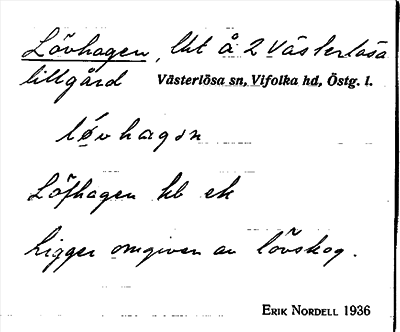 Lövhagen, lht å 2 Västerlösa
lillgård Västerlösa sn, Vifolka hd, Östg. l.
løvhagən
Löfhagen hb ek
Ligger omgiven av lövskog.
ERIK NORDELL 1936